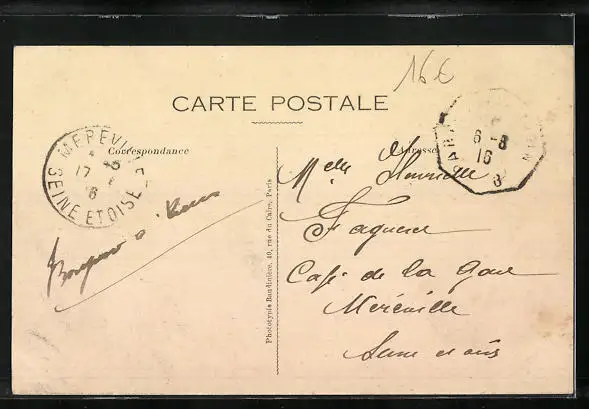 16 €
CARTE POSTALE
Correspondance
Adresse
MEREVILLE
17
SEINE ET OISE
6-8
16
Melle Henriette
Faguere
Café de la Gare
Méréville
Seine et ois
Bonjour a
Phototypie Baudinière, 40, rue du Caire, Paris